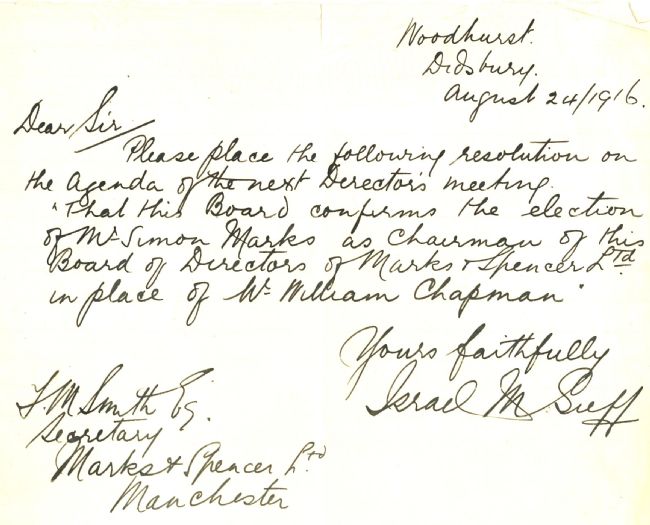 Woodhurst.
Didsbury.
August 24/1916.
Dear Sir
Please place the following resolution on
the Agenda of the next Director's meeting.
"That this Board confirms the election
of Mr Simon Marks as Chairman of this
Board of Directors of Marks & Spencer Ltd.
in place of Mr William Chapman"
Yours faithfully
Israel M. Sieff
F. M Smith Esq.
Secretary
Marks & Spencer Ltd
Manchester